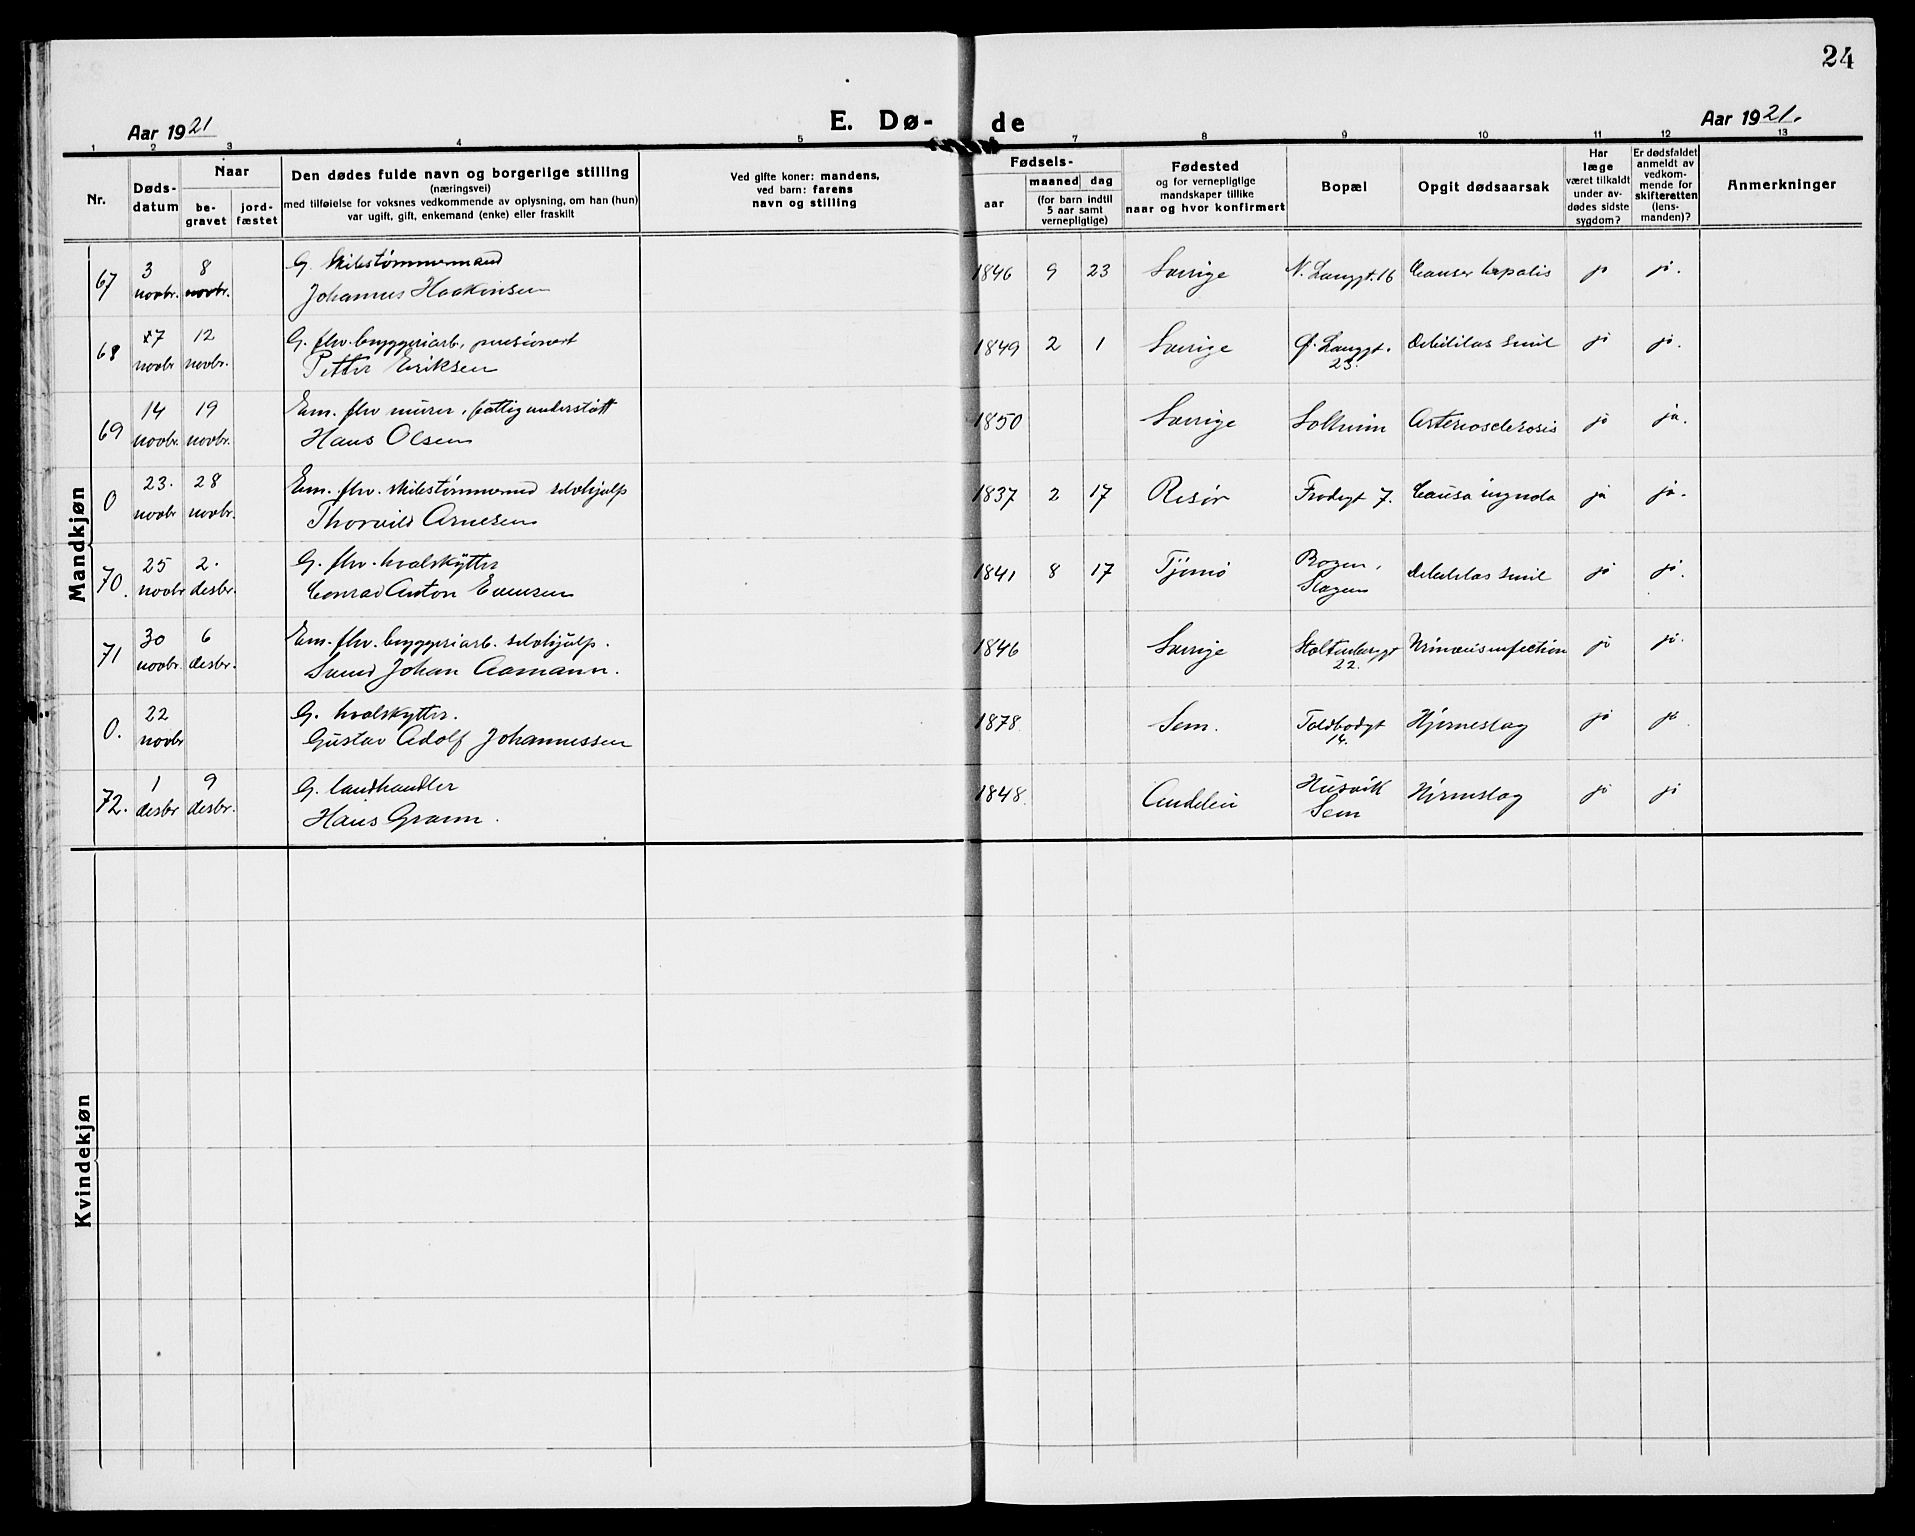 24
Aar 1921
E. Dø- de
Aar 1921.
1 2 3 4 5 7 8 9 10 11 12 13
Nr.
Døds-
datum
Naar
be-
gravet
jord-
fæstet
Den dødes fulde navn og borgerlige stilling
(næringsvei)
med tilføielse for voksnes vedkommende av oplysning, om han (hun)
var ugift, gift, enkemand (enke) eller fraskilt
Ved gifte koner: mandens,
ved barn: farens
navn og stilling
Fødsels-
aar
maaned dag
(for barn indtil
5 aar samt
vernepligtige)
Fødested
og for vernepligtige
mandskaper tillike
naar og hvor konfirmert
Bopæl
Opgit dødsaarsak
Har
læge
været tilkaldt
under av-
dødes sidste
sygdom?
Er dødsfaldet
anmeldt av
vedkom-
mende for
skifteretten
(lens-
manden)?
Anmerkninger
Mandkjøn
67 3 novbr. 8 novbr. G. skibstømmermand
Johannes Haakensen
1846 9 23 Sverige N. Langgt. 16 Cancer hepatis ja ja.
68 7 novbr 12 novbr. G. fhv. bryggeriarb., pensionert
Petter Eriksen
1849 2 1 Sverige Ø. Langgt. 23. Debilitas senil ja ja.
69 14 novbr. 19 novbr. Em. fhv murer, fattigunderstøtt
Hans Olsen
1850 Sverige Solheim Arteriosclerosis ja ja.
0 23. novbr 28 novbr. Em. fhv. skibstømmermd selvhjulp
Thorvild Arnesen
1837 2 17 Risør Frodegt 7. Causa ignota ja ja.
70. 25 novbr 2. desbr. G. fhv. hvalskytter
Conrad Anton Evensen
1841 8 17 Tjømø Rogen, Slagen Debilitas senil ja ja.
71 30 novbr. 6 desbr. Em. fhv. bryggeriarb. selvhjulp.
Svend Johan Aamann.
1846 Sverige Stoltenbergt 22. Urinveisinfection ja ja.
0. 22 novbr G. hvalskytter.
Gustav Adolf Johannessen
1878 Sem. Toldbodgt 14. Hjerneslag ja ja
72. 1 desbr 9 desbr. G. landhandler
Hans Gramn.
1848. Husvik Sem Hjerneslag ja ja
Kvindekjøn